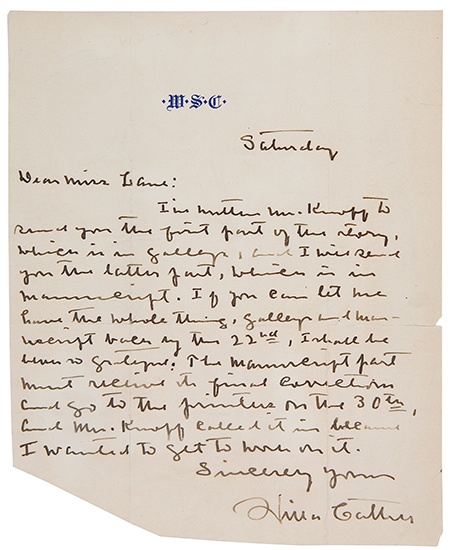 ·W·S·C·
Saturday
Dear Miss Lane:
I've written Mr. Knopf to
send you the first part of the story,
which is in galleys, and I will send
you the latter part, which is in
manuscript. If you can let me
have the whole thing, galleys and man-
uscript back by the 22nd, I shall be
so grateful. The manuscript part
must receive its final correction
and go to the printer on the 30th,
and Mr. Knopf called it in because
I wanted to get to work on it.
Sincerely yours
Willa Cather